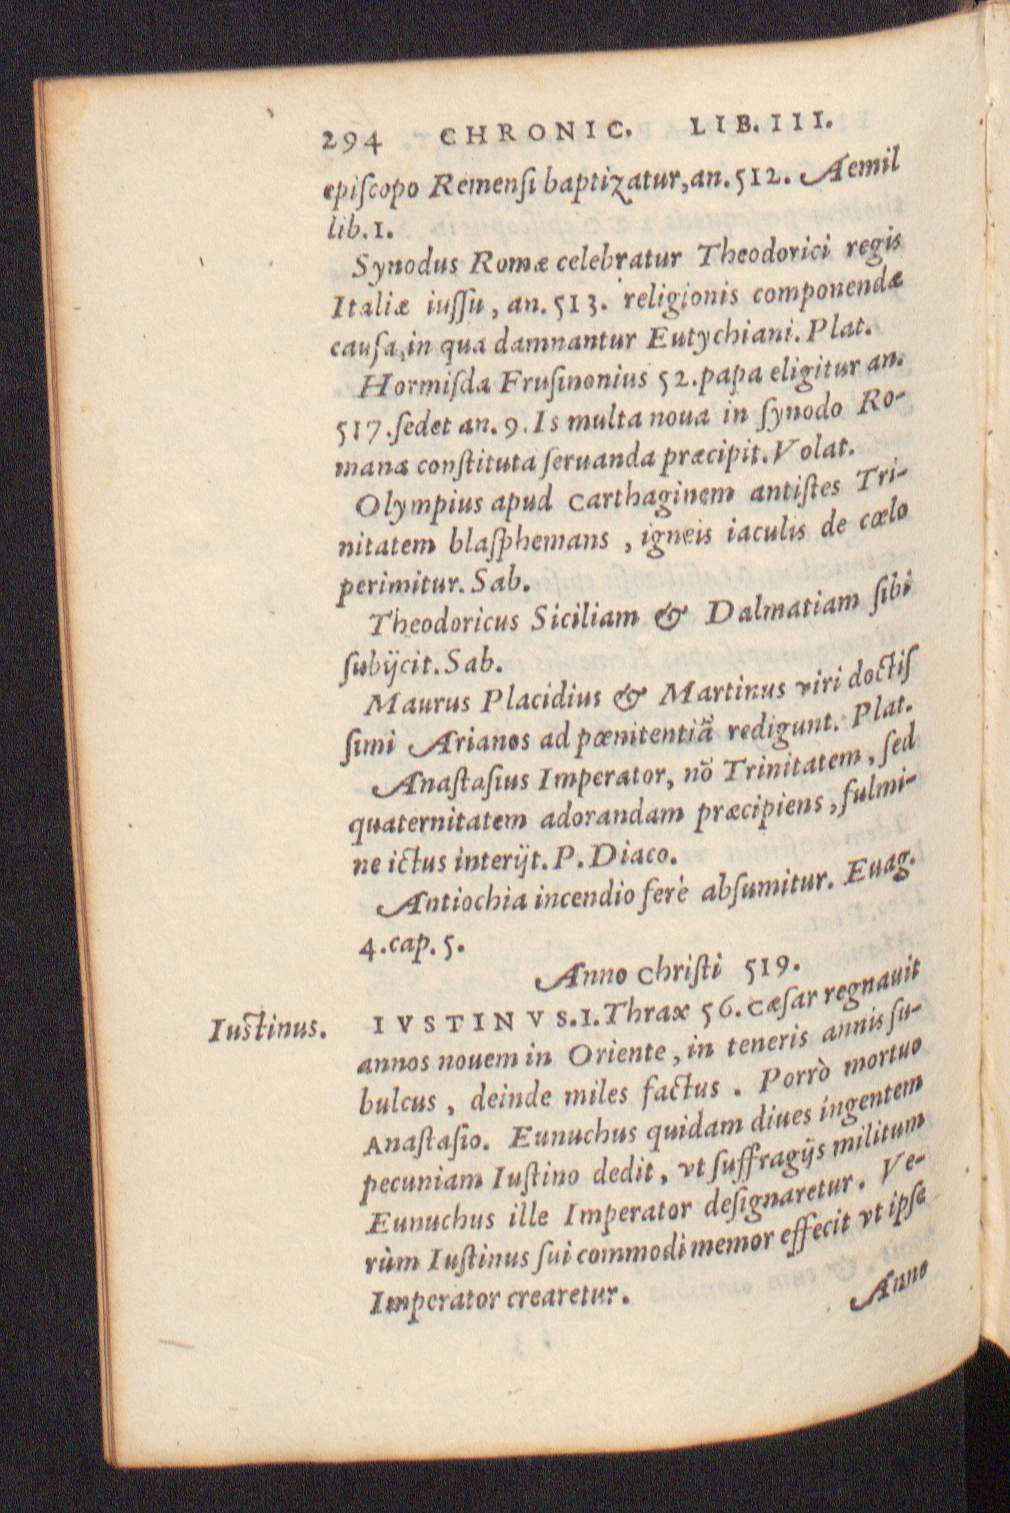 294 CHRONIC. LIB. III.
epiſcopo Remenſi baptizatur, an. 512. Aemil
lib. 1.
Synodus Romæ celebratur Theodorici regis
Italiæ iuſſu, an. 513. religionis componendæ
cauſa, in qua damnantur Eutychiani. Plat.
Hormiſda Fruſinonius 52. papa eligitur an.
517. ſedet an. 9. Is multa noua in ſynodo Ro-
mana conſtituta ſeruanda præcipit. Volat.
Olympius apud Carthaginem antiſtes Tri-
nitatem blaſphemans, igneis iaculis de cœlo
perimitur. Sab.
Theodoricus Siciliam & Dalmatiam ſibi
ſubijcit. Sab.
Maurus Placidius & Martinus viri doctiſ
ſimi Arianos ad pœnitentiā redigunt. Plat.
Anaſtaſius Imperator, nō Trinitatem, ſed
quaternitatem adorandam præcipiens, fulmi-
ne ictus interijt. P. Diaco.
Antiochia incendio ferè abſumitur. Euag.
4. cap. 5.
Anno Chriſti 519.
Iustinus.
IVSTINVS. 1. Thrax 56. Cæſar regnauit
annos nouem in Oriente, in teneris annis ſu-
bulcus, deinde miles factus. Porrò mortuo
Anaſtaſio. Eunuchus quidam diues ingentem
pecuniam Iuſtino dedit, vt ſuffragijs militum
Eunuchus ille Imperator deſignaretur. Ve-
rùm Iuſtinus ſui commodi memor effecit vt ipſe
Imperator crearetur.
Anno